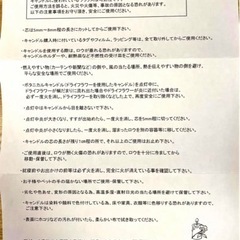 ご使用方法を誤ると、火災や火傷等、事故の原因となる恐れがあります。
以下の注意事項をお守り頂き、安全にご使用ください。
・芯は5mm〜6mm程の長さにカットしてからご使用下さい。
・キャンドル購入時に付いているタグやフィルム、ラッピング等は、全て取り外してからご使用下さい。
・キャンドルを使用する時は、ロウが垂れる恐れがありますので、
キャンドルホルダーや、耐熱製など不燃性の受け皿の上でご使用下さい。
・燃えやすい物(カーテンや新聞など)の側や、風の当たる場所、熱せやすい物の側を避け、
平らな安全な場所でご使用ください。
・ボタニカルキャンドル(ドライフラワーを使用したキャンドル)を点灯中に、
ドライフラワーが
必ず一度火を消し、ドライフラワーを取り除いてからご使用ください。
・点灯中はキャンドルから目を離さないで下さい。
・点灯中火が大きくなり、すすが出始めたら、一度火を消し、芯を短くカットしてください。
・点灯中火が小さくなったら、一度火を消し、溜まったロウを別の容器等に移してください。
・キャンドルの芯の長さが残り1cm程度で、それ以上ご使用はお止め下さい。
・ご使用直後は、ロウが熱く火傷の恐れがありますので、ロウを十分に冷ましてから
移動・保管して下さい。
・就寝前やお出かけの前等は必ず火を消し、完全に火が消えている事を確認して下さい。
・お子様やペットの手の届かない場所でご使用・保管して下さい。
・劣化や色あせ、変形の原因となる為、高温多湿・直射日光の当たる場所を避けて保管して下さい。
・キャンドルは染料や顔料で色付けしている為、床や家具、衣類等に色移りする恐れがありますので
ご注意下さい。
・表面にホコリなどの汚れが付いたら、柔らかい布で拭き取ってください。